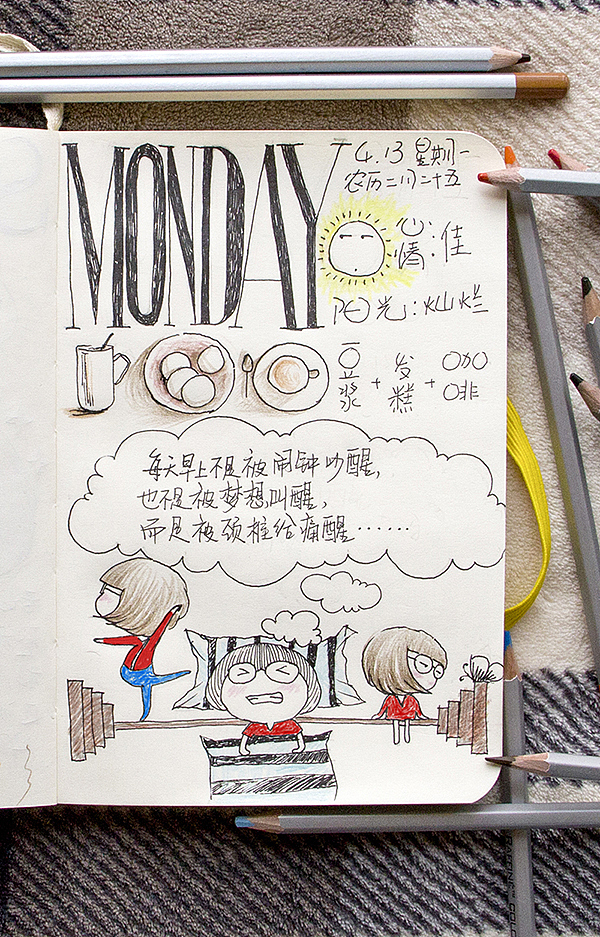 MONDAY
4.13 星期一
农历二月二十五
心情:佳
阳光:灿烂
豆浆+发糕+咖啡
每天早上不是被闹钟吵醒,
也不是被梦想叫醒,
而是被颈椎给痛醒……